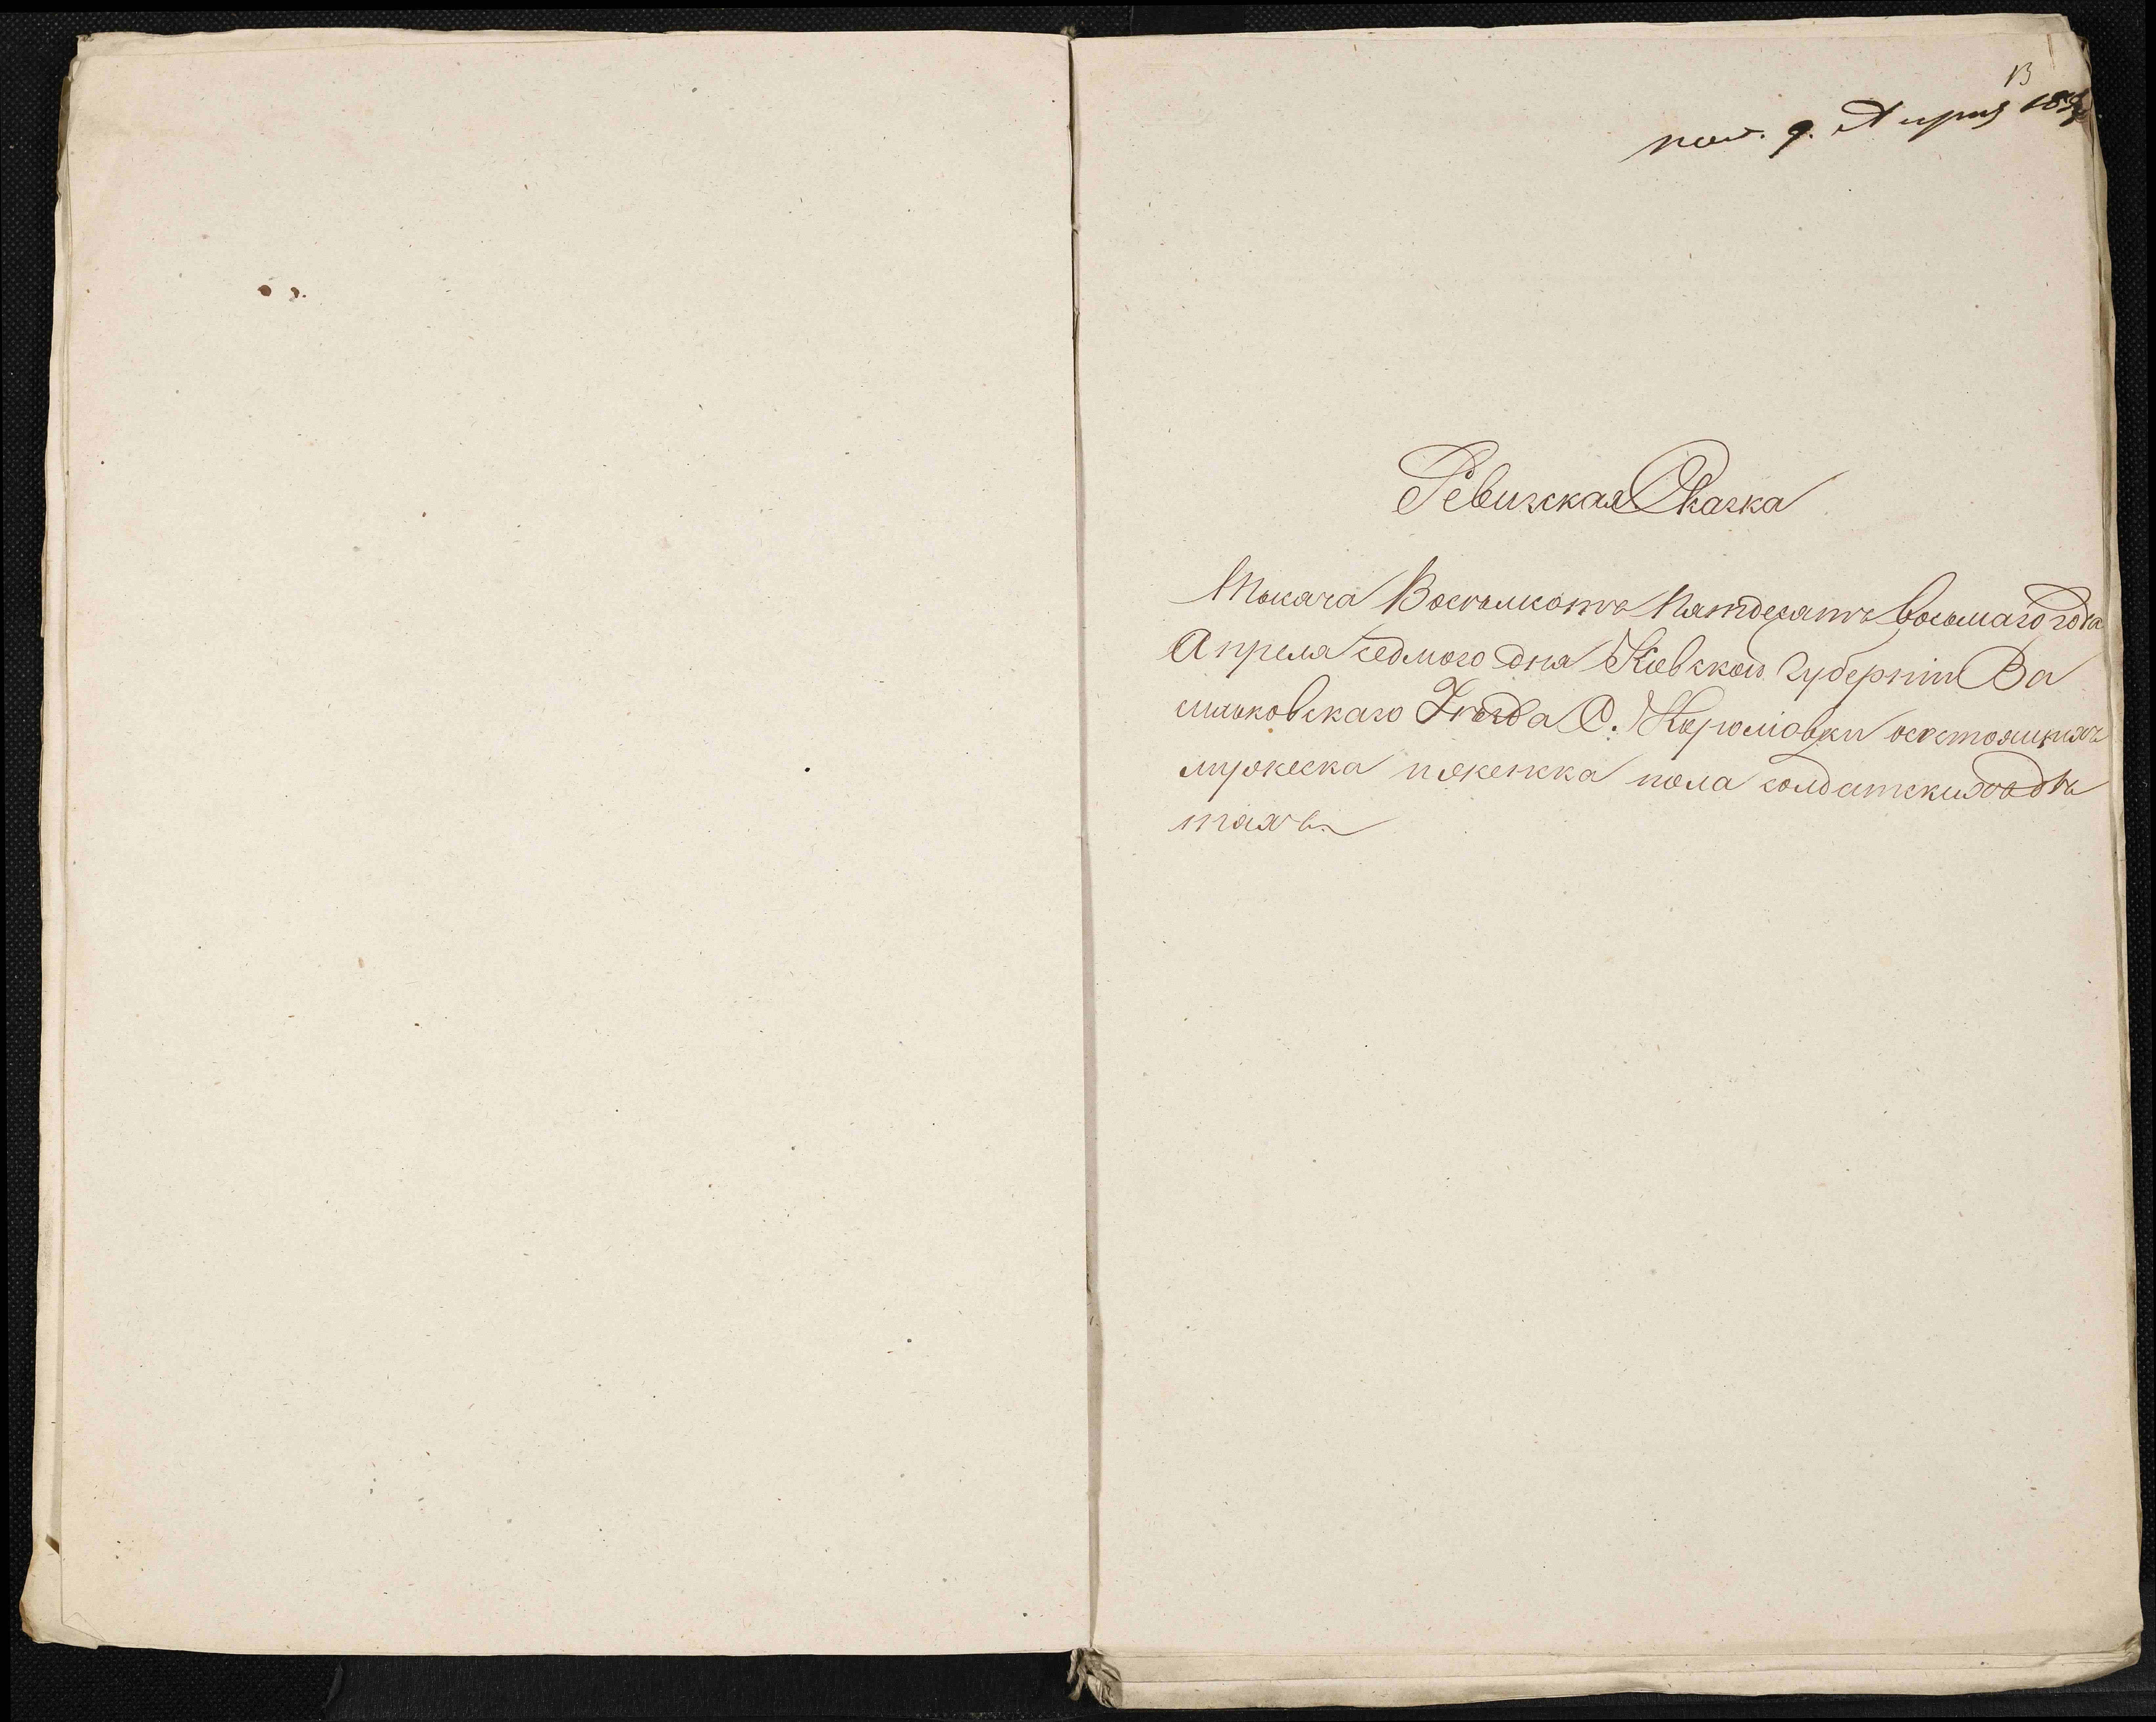 13
пол. 9. Апреля 1858
Ревизская Сказка
Тысяча Восемьсотъ Пятдесятъ восьмаго года
Апреля седмого дня Кіевской Губерніи Ва
сильковскаго Уезда С. состоящихъ
мужеска и женска пола солдатскихъ дѣ
тяхъ